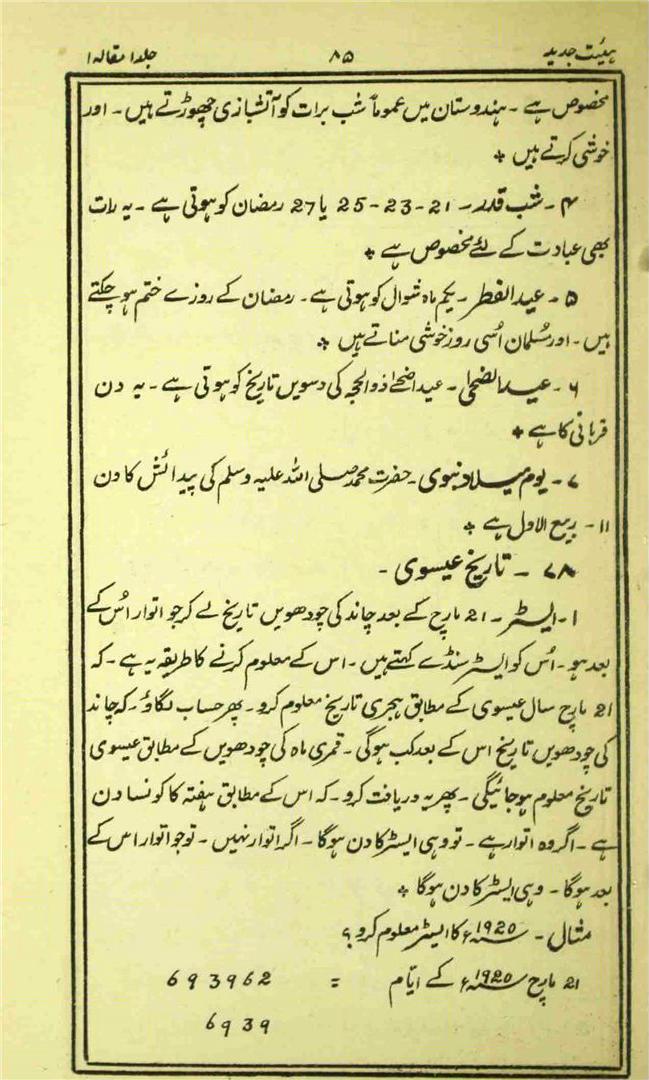 ہیئت جدید ۸۵ جلد۱ مقالہ۱
مخصوص ہے ۔ ہندوستان میں عموماً شب برات کو آتشبازی چھوڑتے ہیں ۔ اور
خوشی کرتے ہیں ٭
۴ ۔ شب قدر ۔ 21-23-25 یا 27 رمضان کو ہوتی ہے ۔ یہ رات
بھی عبادت کے لئے مخصوص ہے ٭
۵ ۔ عید الفطر ۔ یکم ماہ شوال کو ہوتی ہے ۔ رمضان کے روزے ختم ہو چکتے
ہیں ۔ اور مُسلمان اُسی روز خوشی مناتے ہیں ٭
۶ ۔ عید الضحیٰ ۔ عید اضحےٰ ذوالحجہ کی دسویں تاریخ کو ہوتی ہے ۔ یہ دن
قربانی کا ہے ٭
۷ ۔ یوم میلاد نبوی ۔ حضرت محمد صلی اللہ علیہ وسلم کی پیدائش کا دن
۱۱ ۔ ربیع الاول ہے ٭
۷۸ ۔ تاریخ عیسوی ۔
۱ ۔ ایسٹر ۔ 21 مارچ کے بعد چاند کی چودھویں تاریخ لے کر جو اتوار اُس کے
بعد ہو ۔ اُس کو ایسٹر سنڈے کہتے ہیں ۔ اس کے معلوم کرنے کا طریقہ یہ ہے ۔ کہ
21 مارچ سال عیسوی کے مطابق ہجری تاریخ معلوم کرو ۔ پھر حساب لگاؤ ۔ کہ چاند
کی چودھویں تاریخ اس کے بعد کب ہوگی ۔ قمری ماہ کی چودھویں کے مطابق عیسوی
تاریخ معلوم ہو جائیگی ۔ پھر یہ دریافت کرو ۔ کہ اس کے مطابق ہفتہ کا کونسا دن
ہے ۔ اگر وہ اتوار ہے ۔ تو وہی ایسٹر کا دن ہوگا ۔ اگر اتوار نہیں ۔ تو جو اتوار اس کے
بعد ہوگا ۔ وہی ایسٹر کا دن ہوگا ٭
مثال ۔ سنہ 1920ء کا ایسٹر معلوم کرو ؟
21 مارچ سنہ 1920ء کے ایّام = 693962
6939